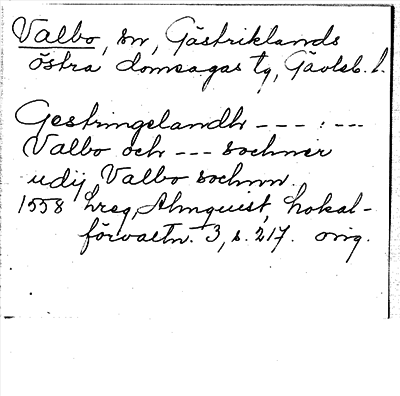 Valbo, sn, Gästriklands
östra domsagas tg, Gävleb. l.
Gestringelandh --- : ---
Valbo och --- sochner
udij Valbo sochnn.
1558 hreg, Almquist, Lokal-
förvaltn. 3, s. 217. orig.